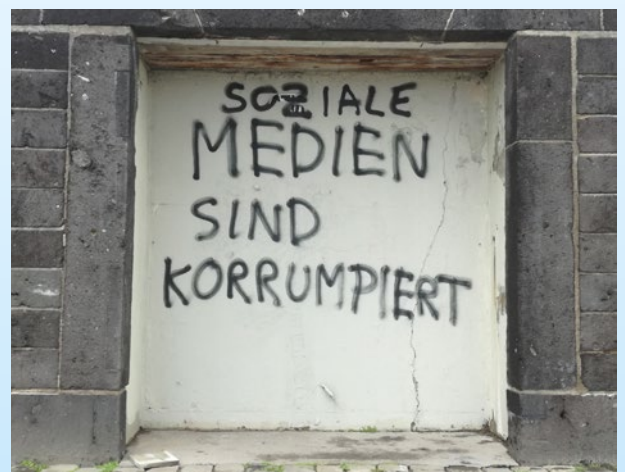 SOZIALE
MEDIEN
SIND
KORRUMPIERT